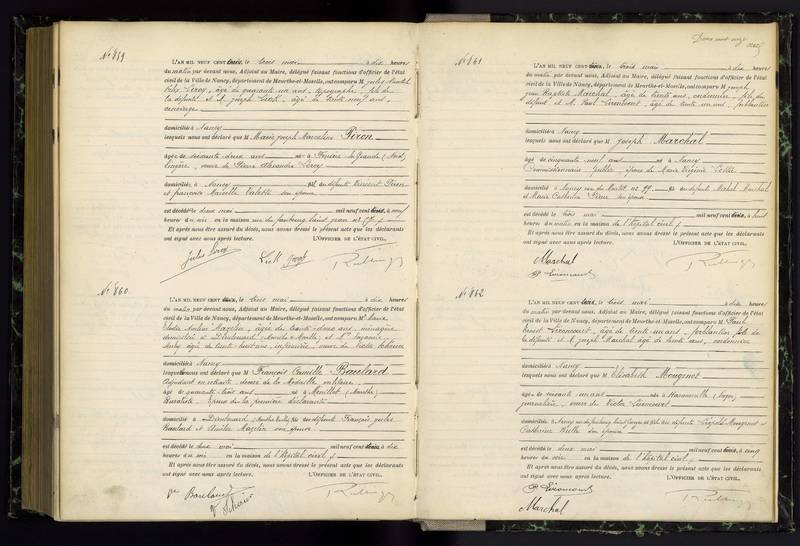 Nº 859
L'AN MIL NEUF CENT trois, le trois mai à dix heures
du matin par devant nous, Adjoint au Maire, délégué faisant fonctions d'officier de l'état
civil de la Ville de Nancy, département de Meurthe-et-Moselle, ont comparu M Jules
Leroy, âgé de quarante un ans, typographe, fils de
la défunte et M. Joseph Lick, âgé de trente neuf ans,
concierge
domiciliés à Nancy
lesquels nous ont déclaré que M Marie Joseph Marceline Piron
âgée de soixante deux ans née à (Nord)
lingère, veuve de Pierre Alexandre Leroy
domiciliée, à Nancy fille des défunts Vincent Piron
et Françoise Valette son épouse
est décédée le deux mai mil neuf cent trois, à neuf
heures du soir en la maison rue du faubourg Saint Jean
Et après nous être assuré du décès, nous avons dressé le présent acte que les déclarants
ont signé avec nous après lecture. L'OFFICIER DE L'ÉTAT CIVIL,
Jules Leroy Lick Joseph
Nº 860
L'AN MIL NEUF CENT trois, le trois mai à dix heures
du matin par devant nous, Adjoint au Maire, délégué faisant fonctions d'officier de l'état
civil de la Ville de Nancy, département de Meurthe-et-Moselle, ont comparu M
Mazelin, âgée de trente deux ans, ménagère
domiciliée à Dieulouard (Meurthe & Moselle) et Mme Eugénie
âgée de trente huit ans, infirmière, veuve de
domiciliée à Nancy
lesquelles nous ont déclaré que M François Camille Baulard
Adjudant en retraite, décoré de la Médaille militaire
âgé de quarante trois ans né à Ménillot (Meurthe)
Buraliste, Epoux de la première déclarante
domicilié à Dieulouard (Meurthe & Moselle), fils des défunts François Jules
Baulard et Mazelin son épouse
est décédé le deux mai mil neuf cent trois, à dix
heures du soir en la maison de l'Hôpital civil
Et après nous être assuré du décès, nous avons dressé le présent acte que les déclarants
ont signé avec nous après lecture. L'OFFICIER DE L'ÉTAT CIVIL,
Ve Baulard
Deux cent onze
Nº 861
L'AN MIL NEUF CENT trois, le trois mai à dix heures
du matin par devant nous, Adjoint au Maire, délégué faisant fonctions d'officier de l'état
civil de la Ville de Nancy, département de Meurthe-et-Moselle, ont comparu M Joseph
Jean Baptiste Marchal, âgé de trente ans, cordonnier, fils du
défunt et M. Paul Lironcourt, âgé de trente un ans, ferblantier
domiciliés à Nancy
lesquels nous ont déclaré que M Joseph Marchal
âgé de cinquante neuf ans né à Nancy
Commissionnaire, époux de Marie Virginie
domicilié à Nancy fils des défunts Marchal
et Marie Catherine son épouse
est décédé le trois mai mil neuf cent trois, à huit
heures du matin en la maison de l'Hôpital civil
Et après nous être assuré du décès, nous avons dressé le présent acte que les déclarants
ont signé avec nous après lecture. L'OFFICIER DE L'ÉTAT CIVIL,
Marchal
P. Lironcourt
Nº 862
L'AN MIL NEUF CENT trois, le trois mai à dix heures
du matin par devant nous, Adjoint au Maire, délégué faisant fonctions d'officier de l'état
civil de la Ville de Nancy, département de Meurthe-et-Moselle, ont comparu M Paul
Ernest Lironcourt, âgé de trente un ans, ferblantier, fils de
la défunte et M. Joseph Marchal âgé de trente ans, cordonnier
domiciliés à Nancy
lesquels nous ont déclaré que M Elisabeth Mougenot
âgée de soixante un ans née à (Vosges)
journalière, veuve de Victor Lironcourt
domiciliée à Nancy fille des défunts Mougenot et
Catherine son épouse
est décédée le deux mai mil neuf cent trois, à cinq
heures du soir en la maison de l'Hôpital civil
Et après nous être assuré du décès, nous avons dressé le présent acte que les déclarants
ont signé avec nous après lecture. L'OFFICIER DE L'ÉTAT CIVIL,
P. Lironcourt
Marchal